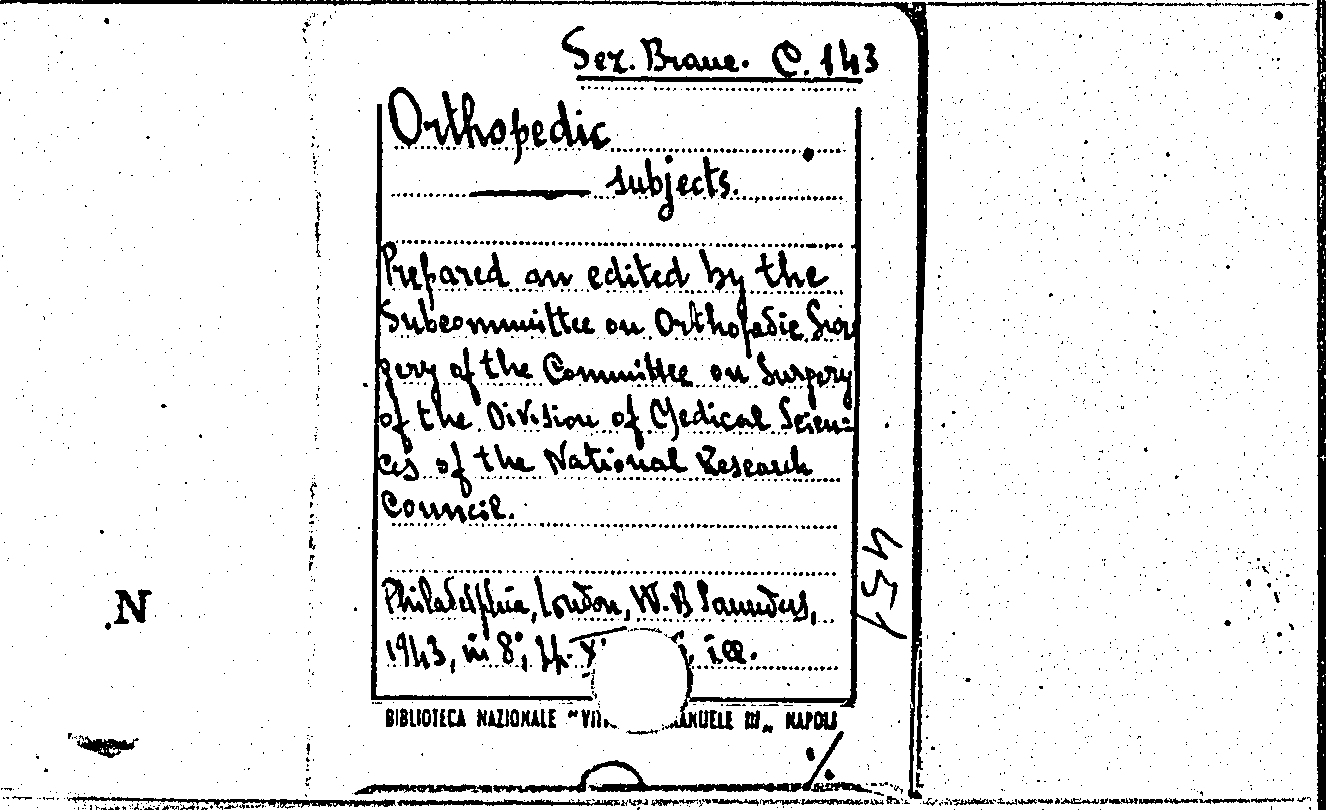 Sez. Branc. C. 143
Orthopedic
subjects.
Prepared an edited by the
Subcommittee on Orthopadic Sur
gery of the Committee on Surgery
of the Division of Medical Scien=
ces of the National Research
Council.
Philadelphia, London, W. B Saunders,
1943, in 8°, pp. ill.
BIBLIOTECA NAZIONALE "VITT ANUELE III„ NAPOLI
N